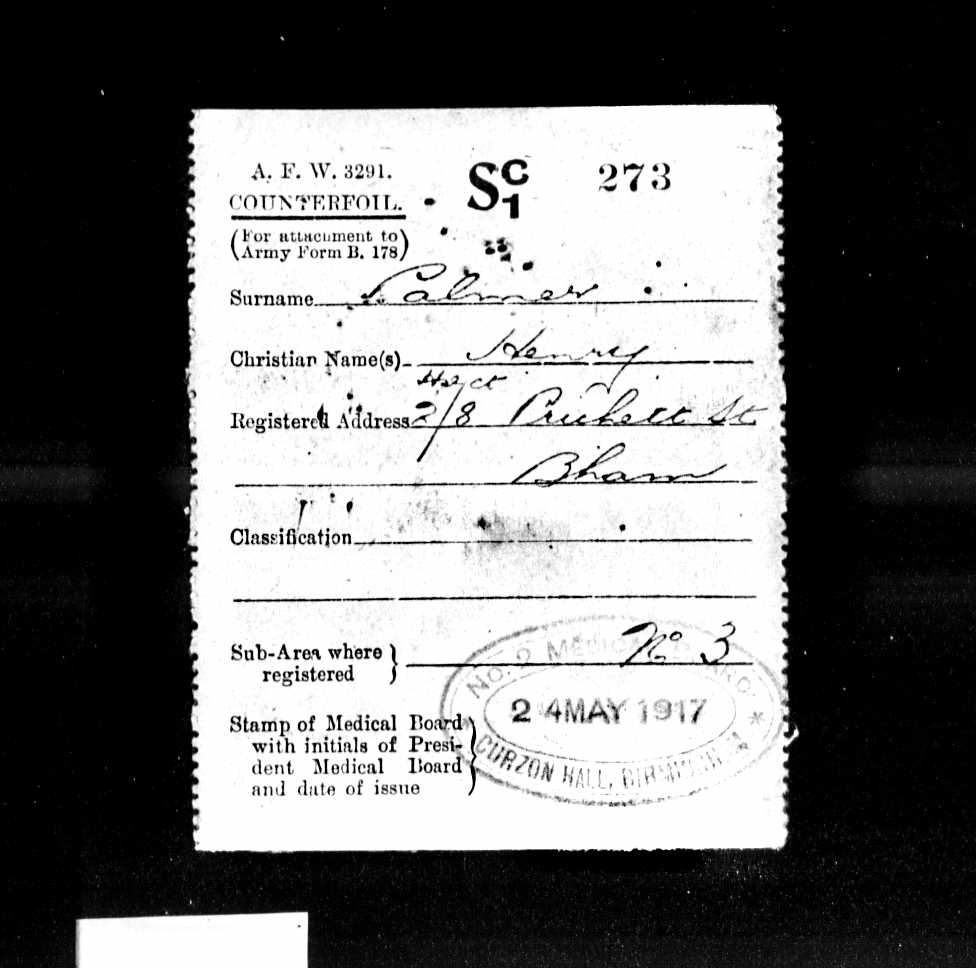 A. F. W. 3291.
COUNTERFOIL.
Sc1 273
(For attachment to
Army Form B. 178)
Surname Palmer
Christian Name(s) Henry
Registered Address 2/8 St
Bham
Classification
Sub-Area where
registered } No 3
Stamp of Medical Board
with initials of Presi-
dent Medical Board
and date of issue
NO. 2 MEDICAL BOARD.
24 MAY 1917
CURZON HALL, BIRMINGHAM